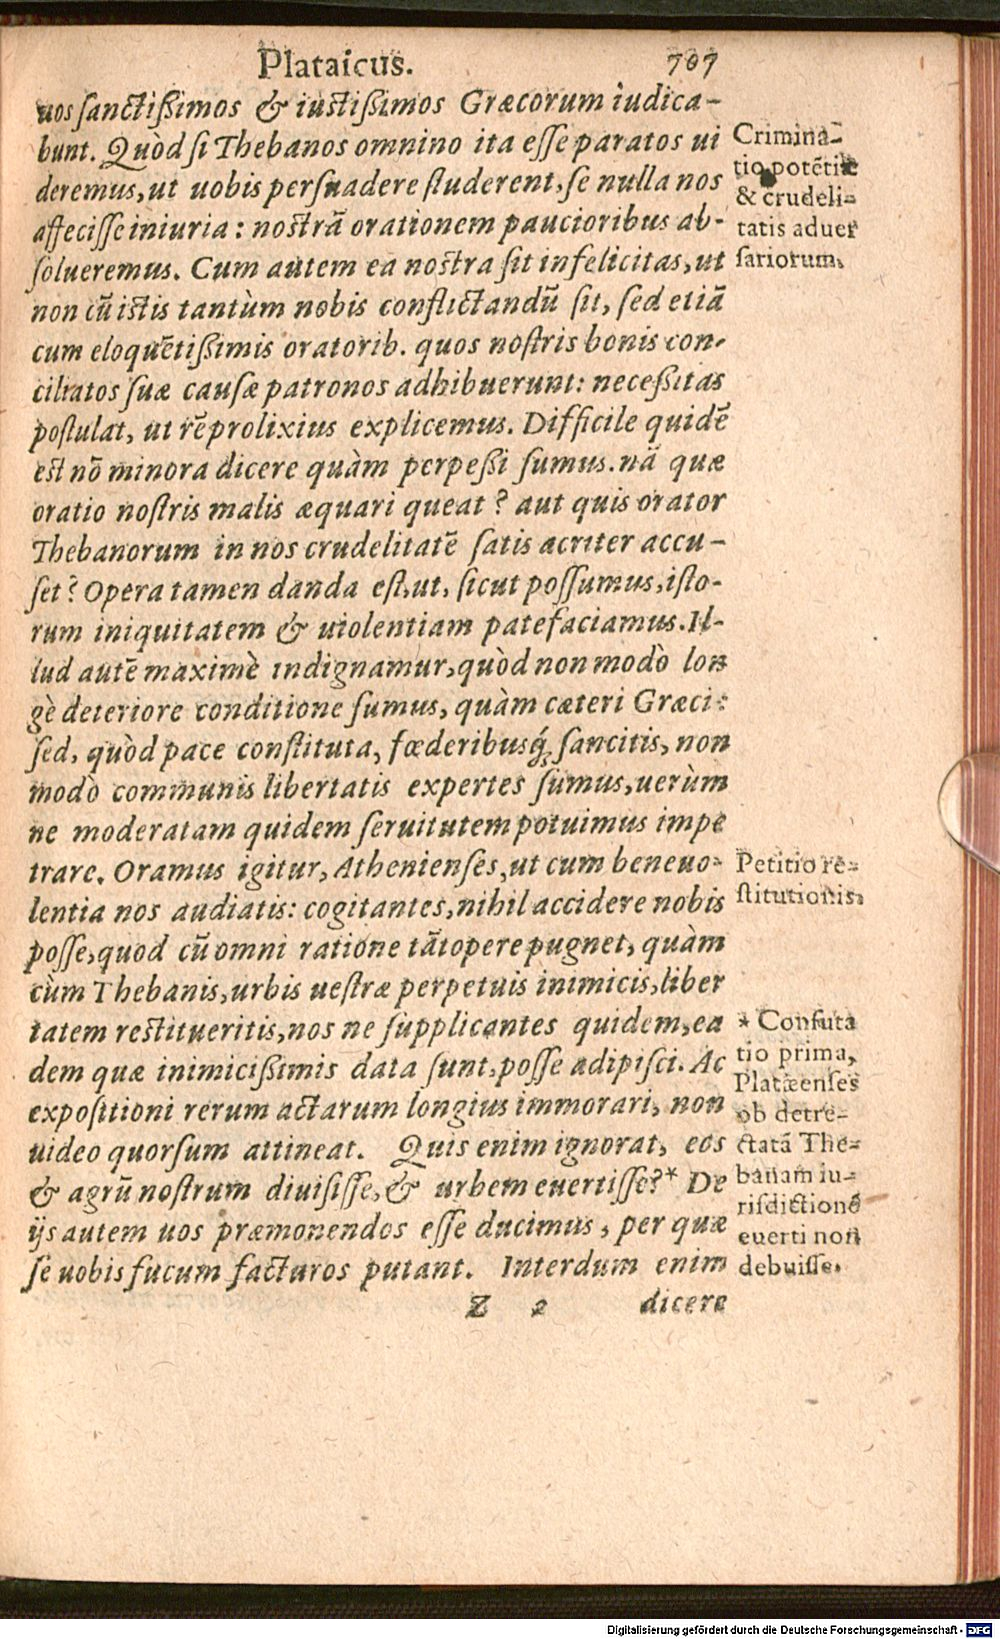 Plataicus. 707
uos sanctißimos & iustißimos Græcorum iudica-
bunt. Quòd si Thebanos omnino ita esse paratos ui
deremus, ut uobis persuadere studerent, se nulla nos
affecisse iniuria: nostrā orationem paucioribus ab-
solueremus. Cum autem ea nostra sit infelicitas, ut
non cū istis tantùm nobis conflictandū sit, sed etiā
cum eloquētißimis oratorib. quos nostris bonis con-
ciliatos suæ causæ patronos adhibuerunt: neceßitas
postulat, ut rē prolixius explicemus. Difficile quidē
est nō minora dicere quàm perpeßi sumus. nā quæ
oratio nostris malis æquari queat? aut quis orator
Thebanorum in nos crudelitatē satis acriter accu-
set? Opera tamen danda est, ut, sicut possumus, isto-
rum iniquitatem & uiolentiam patefaciamus. Il-
lud autē maximè indignamur, quòd non modò lon
gè deteriore conditione sumus, quàm cæteri Græci:
sed, quòd pace constituta, fœderibusq́; sancitis, non
modò communis libertatis expertes sumus, uerùm
ne moderatam quidem seruitutem potuimus impe
trare. Oramus igitur, Athenienses, ut cum beneuo-
lentia nos audiatis: cogitantes, nihil accidere nobis
posse, quod cū omni ratione tātopere pugnet, quàm
cùm Thebanis, urbis uestræ perpetuis inimicis, liber
tatem restitueritis, nos ne supplicantes quidem, ea
dem quæ inimicißimis data sunt, posse adipisci. Ac
expositioni rerum actarum longius immorari, non
uideo quorsum attineat. Quis enim ignorat, eos
& agrū nostrum diuisisse, & urbem euertisse?* De
ijs autem uos præmonendos esse ducimus, per quæ
se uobis fucum facturos putant. Interdum enim
Z 2 dicere
Crimina-
tio potētiæ
& crudeli-
tatis aduer
sariorum.
Petitio re-
stitutionis.
* Confuta
tio prima,
Platæenses
ob detre-
ctatā The-
banam iu-
risdictionē
euerti non
debuisse.
Digitalisierung gefördert durch die Deutsche Forschungsgemeinschaft - DFG